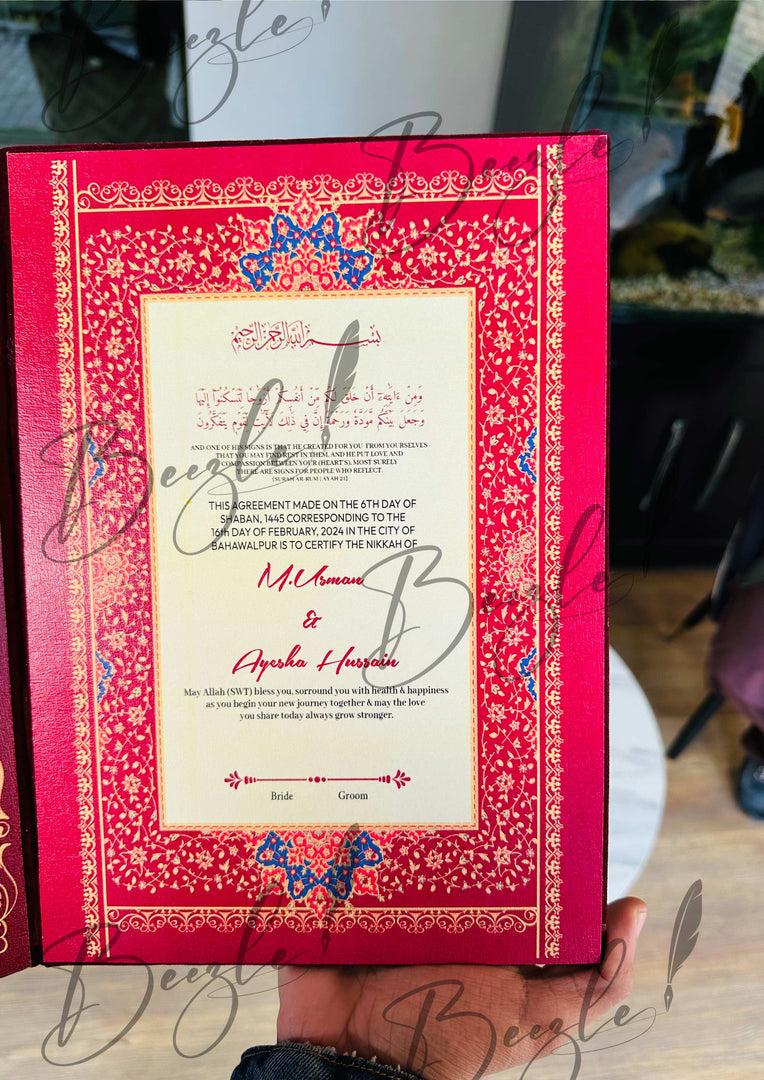 بسم الله الرحمن الرحيم
وَمِنْ ءَايَٰتِهِۦٓ أَنْ خَلَقَ لَكُم مِّنْ أَنفُسِكُمْ أَزْوَٰجًا لِّتَسْكُنُوٓا۟ إِلَيْهَا
وَجَعَلَ بَيْنَكُم مَّوَدَّةً وَرَحْمَةً إِنَّ فِى ذَٰلِكَ لَءَايَٰتٍ لِّقَوْمٍ يَتَفَكَّرُونَ
AND ONE OF HIS SIGNS IS THAT HE CREATED FOR YOU FROM YOURSELVES
THAT YOU MAY FIND REST IN THEM, AND HE PUT LOVE AND
COMPASSION BETWEEN YOUR (HEART'S). MOST SURELY
THERE ARE SIGNS FOR PEOPLE WHO REFLECT.
[SURAH AR-RUM | AYAH 21]
THIS AGREEMENT MADE ON THE 6TH DAY OF
SHABAN, 1445 CORRESPONDING TO THE
16th DAY OF FEBRUARY, 2024 IN THE CITY OF
BAHAWALPUR IS TO CERTIFY THE NIKKAH OF
M.Usman
&
Ayesha Hussain
May Allah (SWT) bless you, sorround you with health & happiness
as you begin your new journey together & may the love
you share today always grow stronger.
Bride Groom
Beezle!
Beezle!
Beezle!
Beezle!
Beezle!
Beezle!